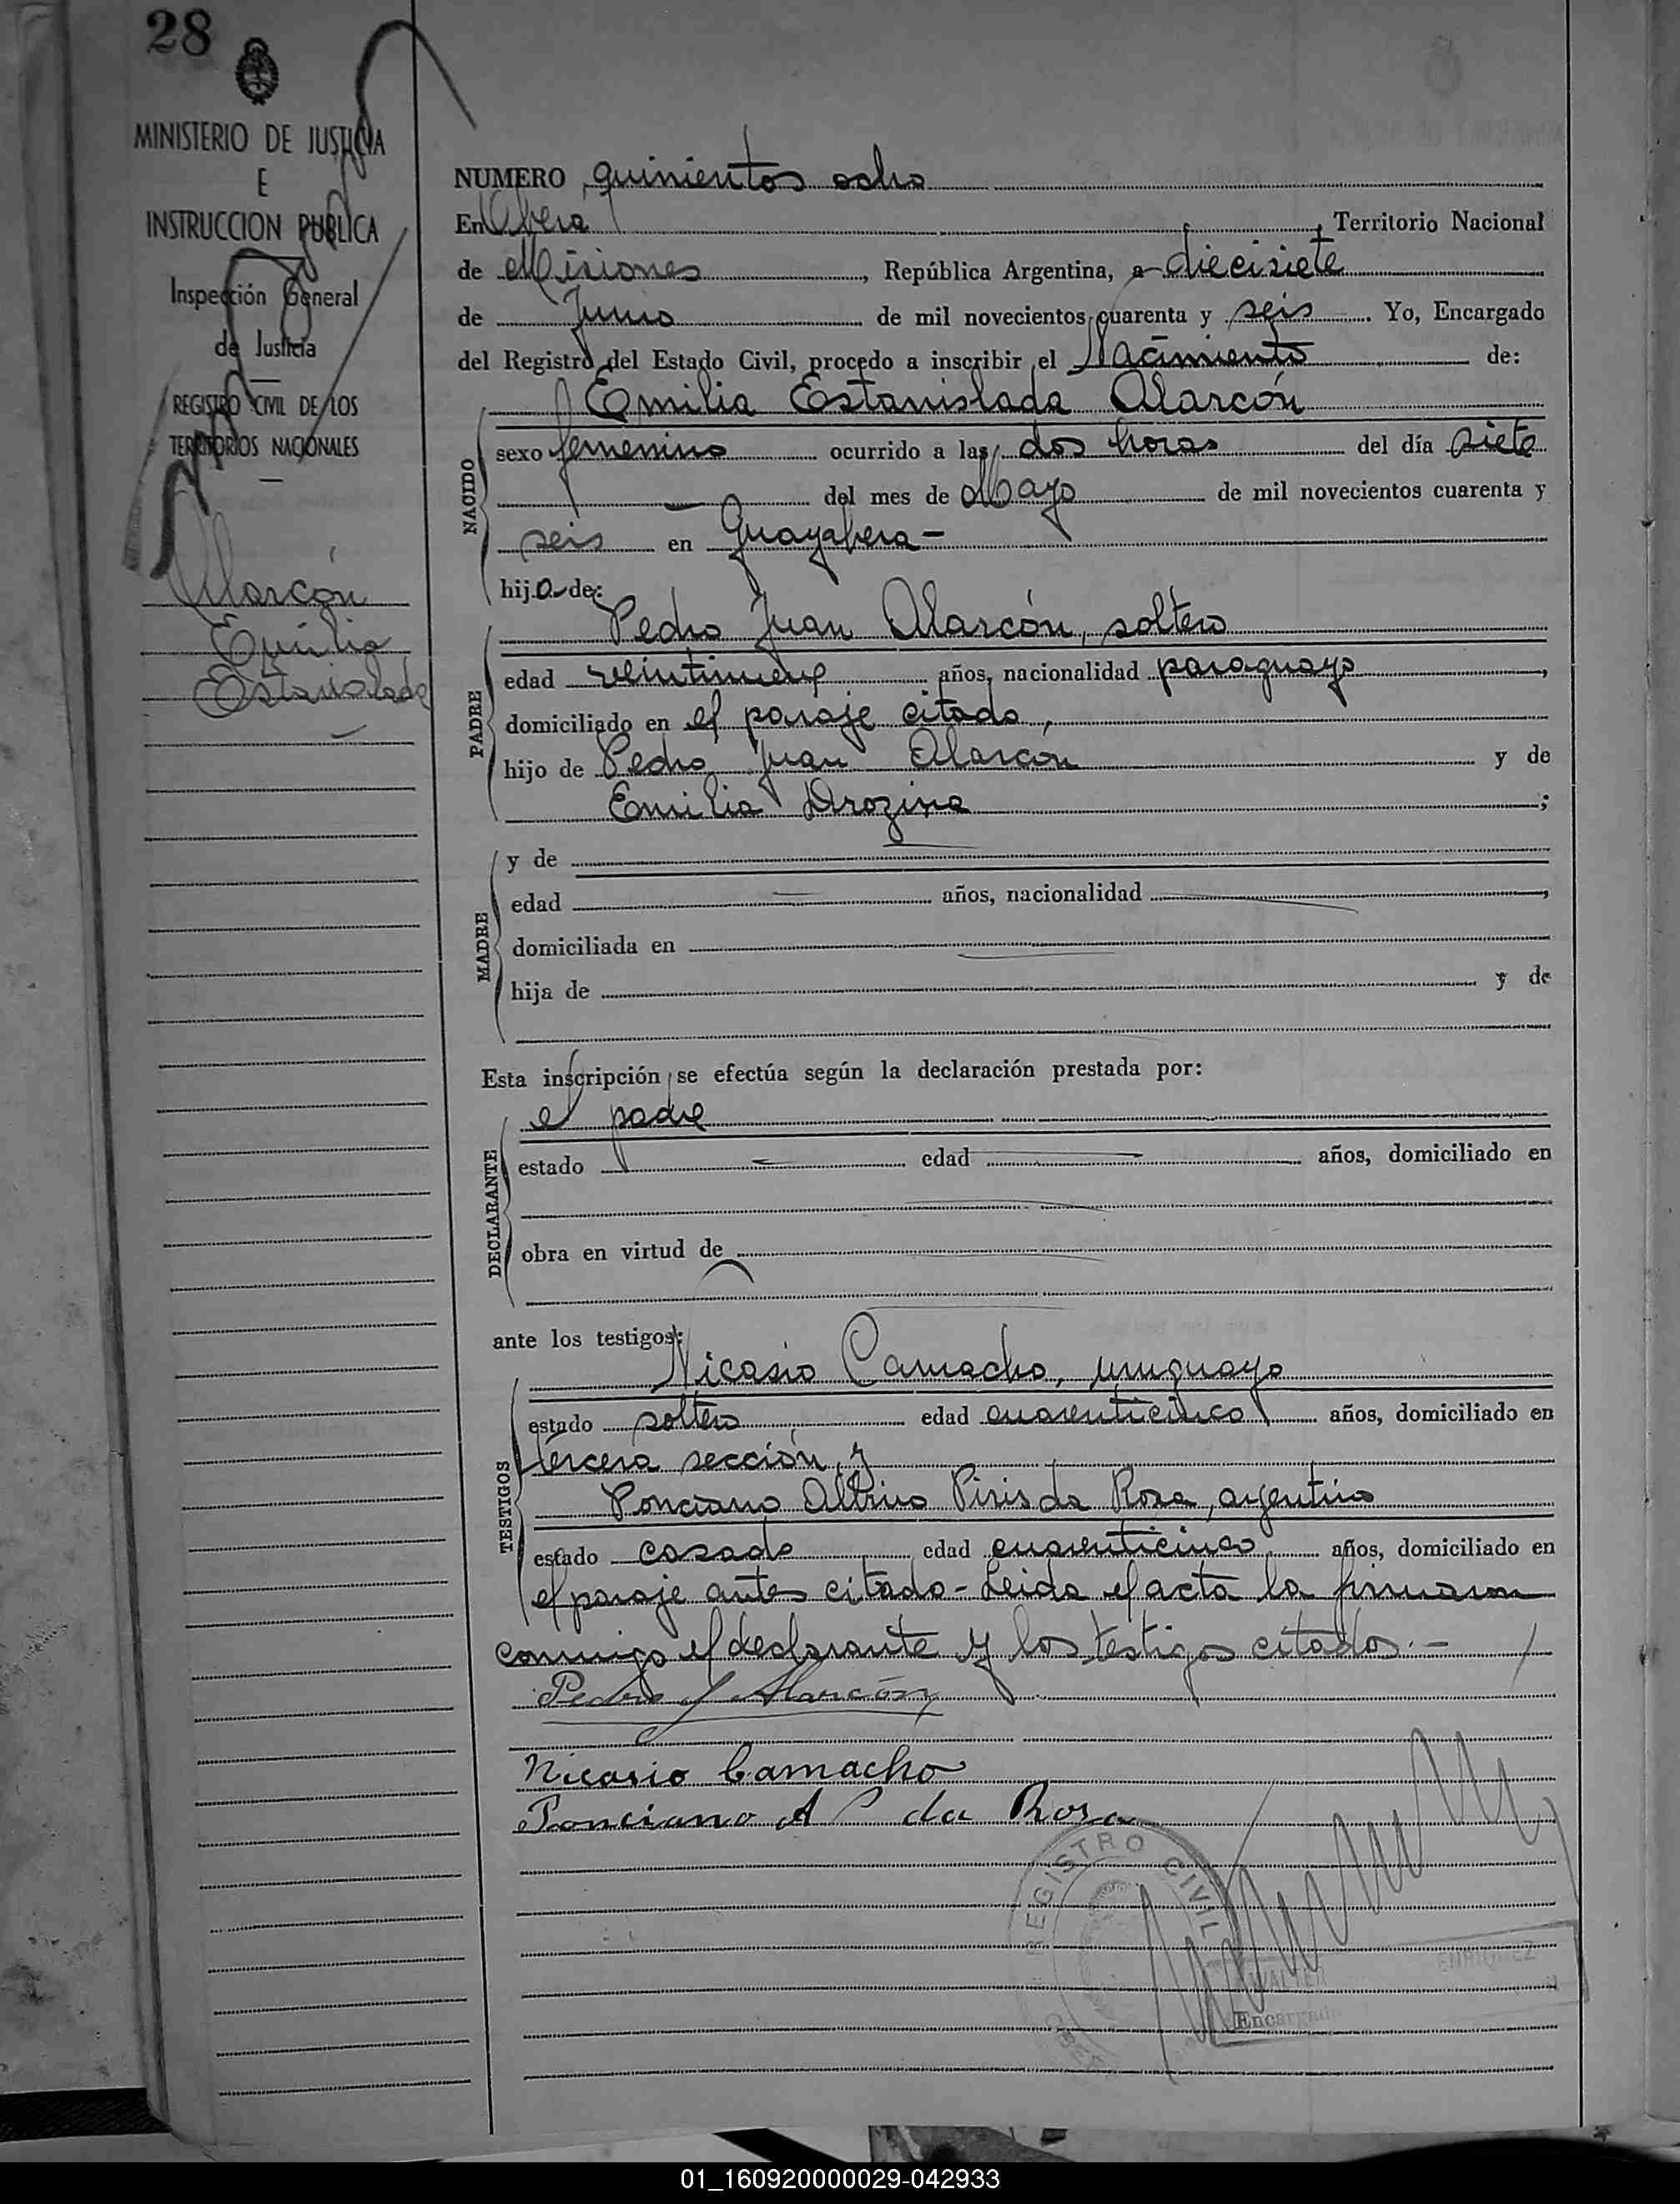 28
MINISTERIO DE JUSTICIA
E
INSTRUCCION PUBLICA
Inspección General
de Justicia
REGISTRO CIVIL DE LOS
TERRITORIOS NACIONALES
Alarcón
Emilia
Estanislada
NUMERO quinientos ocho
En Obera, Territorio Nacional
de Misiones, República Argentina, a diecisiete
de Junio de mil novecientos cuarenta y seis. Yo, Encargado
del Registro del Estado Civil, procedo a inscribir el Nacimiento de:
NACIDO
Emilia Estanislada Alarcón
sexo femenino ocurrido a las dos horas del día siete
del mes de Mayo de mil novecientos cuarenta y
seis en Guayabera-
hija de:
PADRE
Pedro Juan Alarcón, soltero
edad veintinueve años, nacionalidad paraguayo,
domiciliado en el paraje citado,
hijo de Pedro Juan Alarcón y de
Emilia;
MADRE
y de
edad años, nacionalidad,
domiciliada en
hija de y de
Esta inscripción se efectúa según la declaración prestada por:
DECLARANTE
el padre
estado edad años, domiciliado en
obra en virtud de
ante los testigos:
TESTIGOS
Nicasio Camacho, uruguayo
estado soltero edad cuarenticinco años, domiciliado en
tercera sección, y
Ponciano Piris da Rosa, argentino
estado casado edad cuarenticinco años, domiciliado en
el paraje antes citado- Leida el acta la firmaron
conmigo el declarante y los testigos citados.-
Pedro J Alarcón
Nicasio Camacho
Ponciano A P da Rosa
REGISTRO CIVIL
WALTER ENRIQUEZ
Encargado
01_160920000029-042933